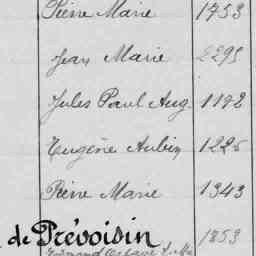 Pierre Marie 1753
Jean Marie 2295
Jules Paul Aug. 1192
Eugène Aubin 1225
Pierre Marie 1343
de Prévoisin 1853